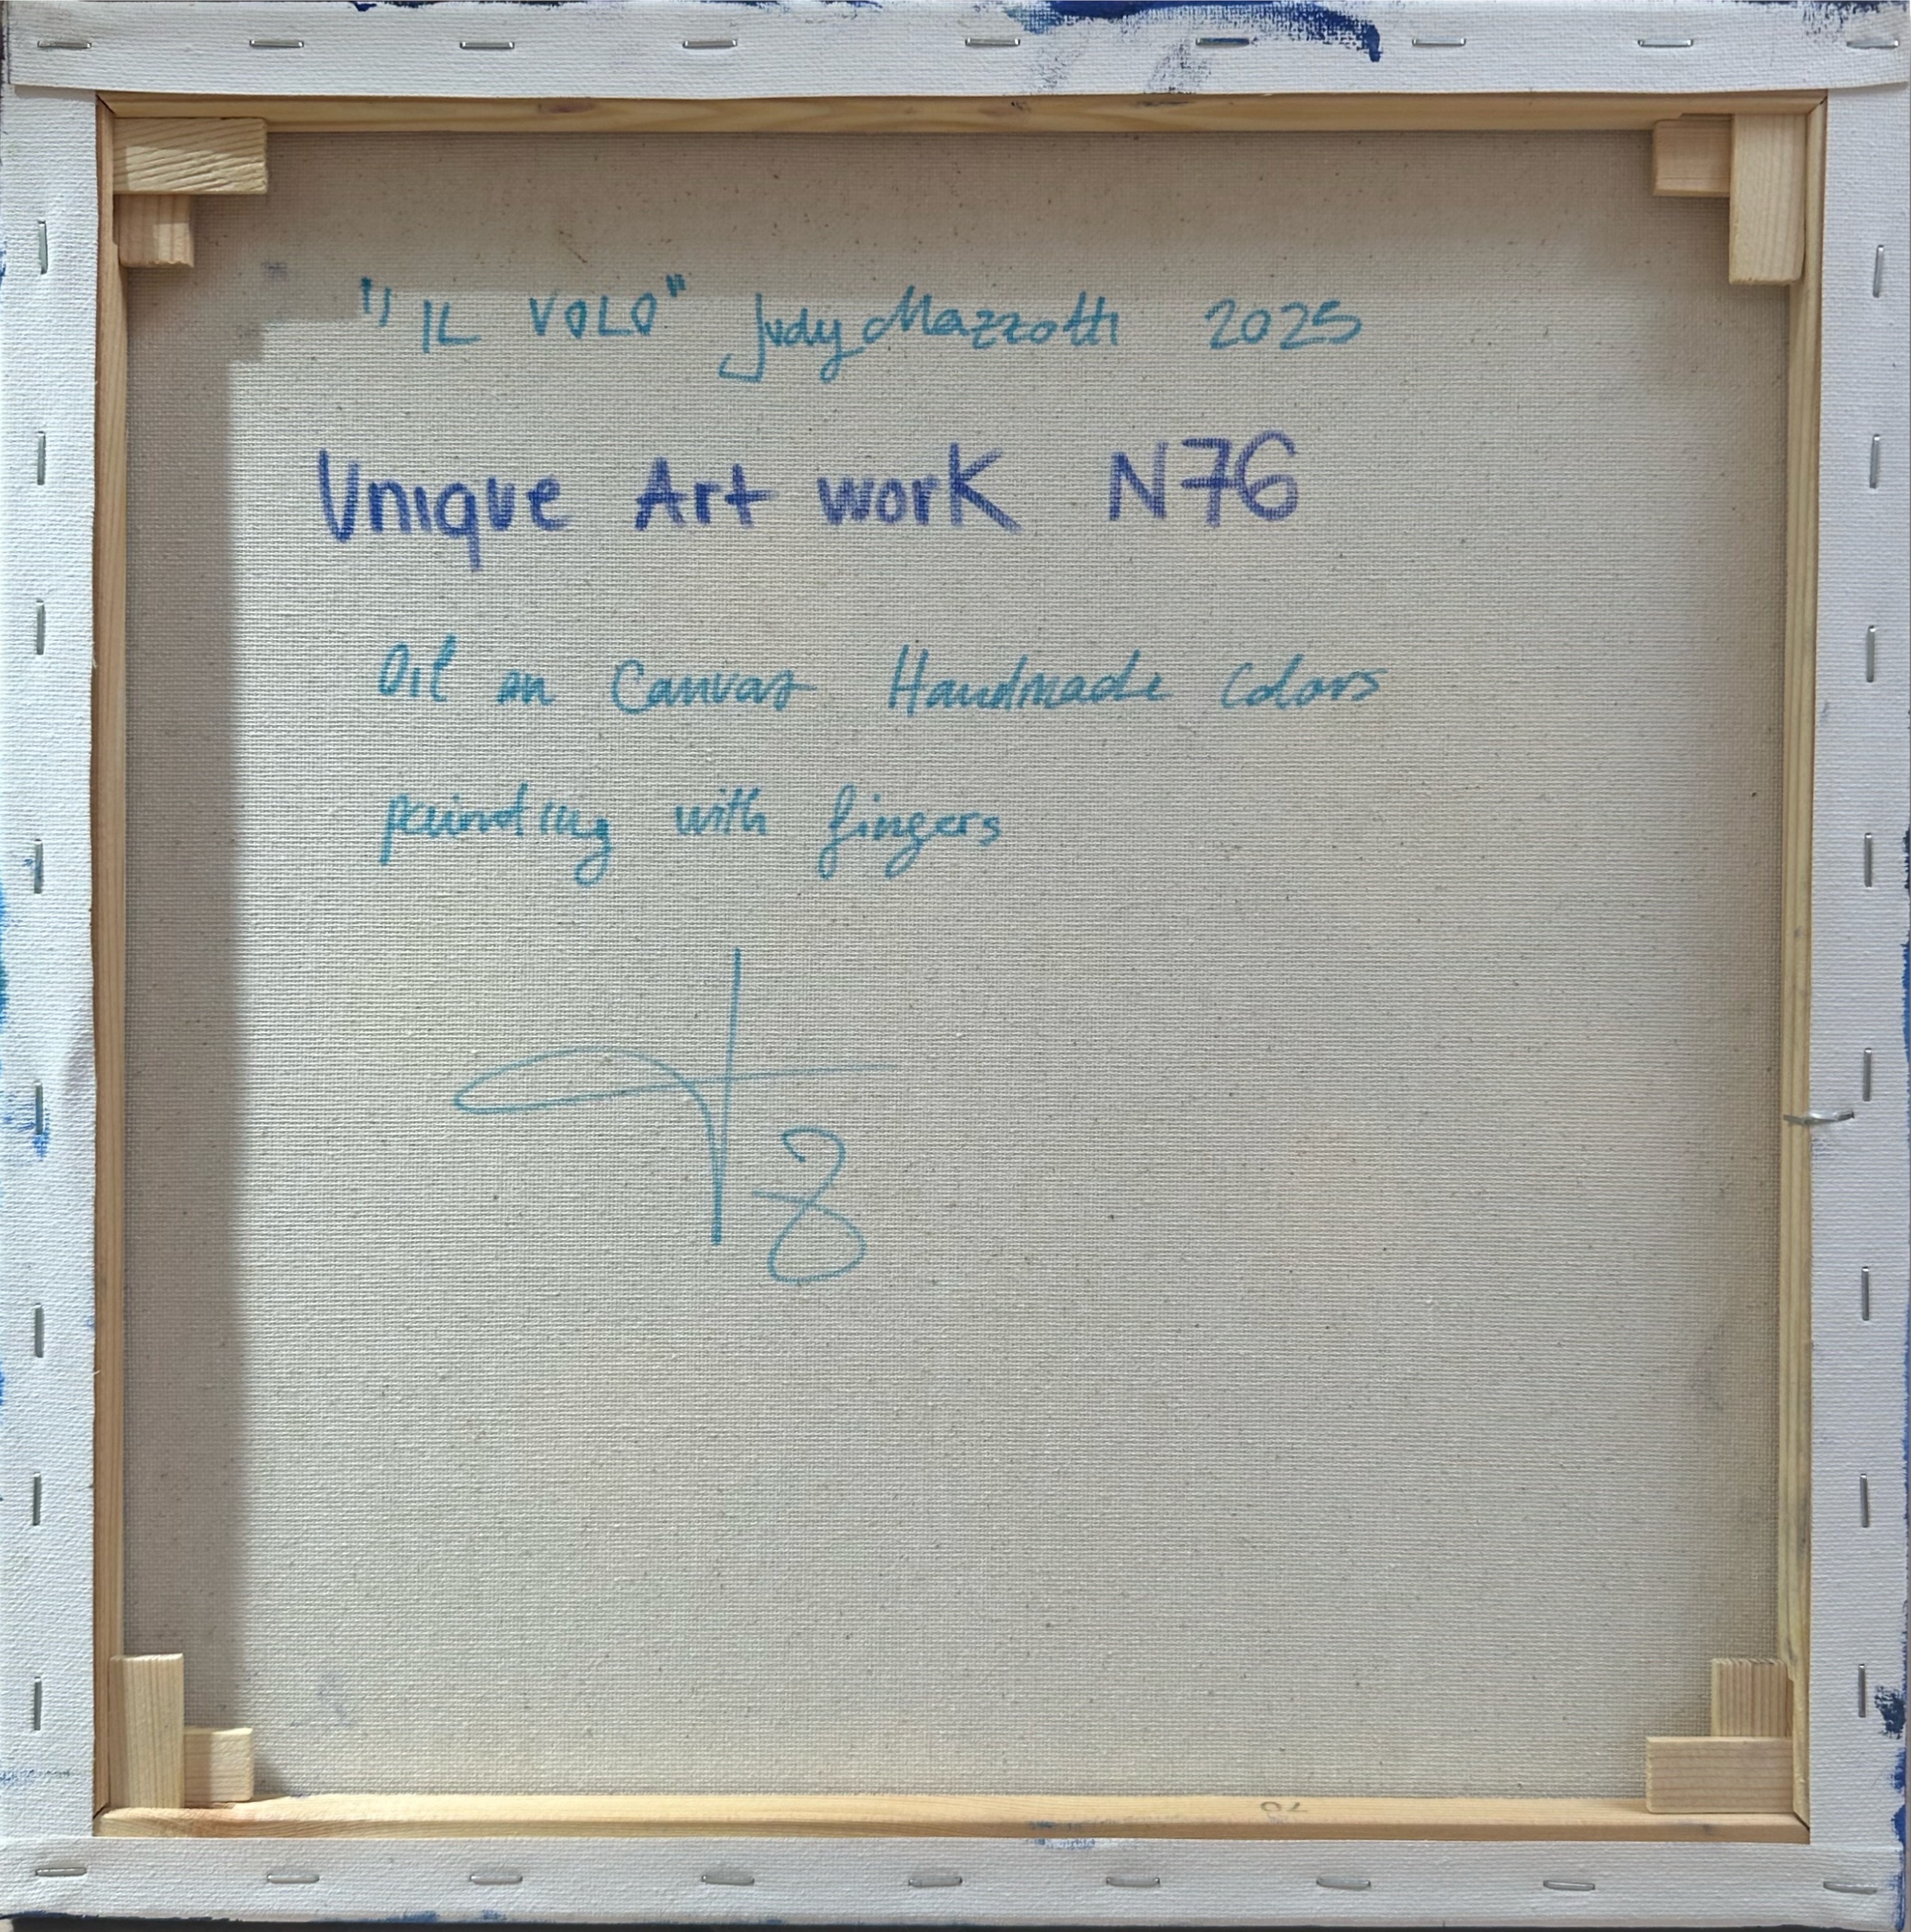 "IL VOLO" Judy Mazzotti 2025
Unique Art work N76
Oil on Canvas Handmade Colors
painting with fingers